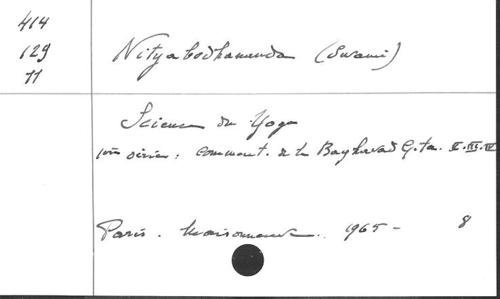 414
129
11
Nityabodhananda (Swami)
Science du Yoga
1ère série : comment. de la Baghavad Gita. II. III. IV
Paris. Maisonneuve. 1965 - 8